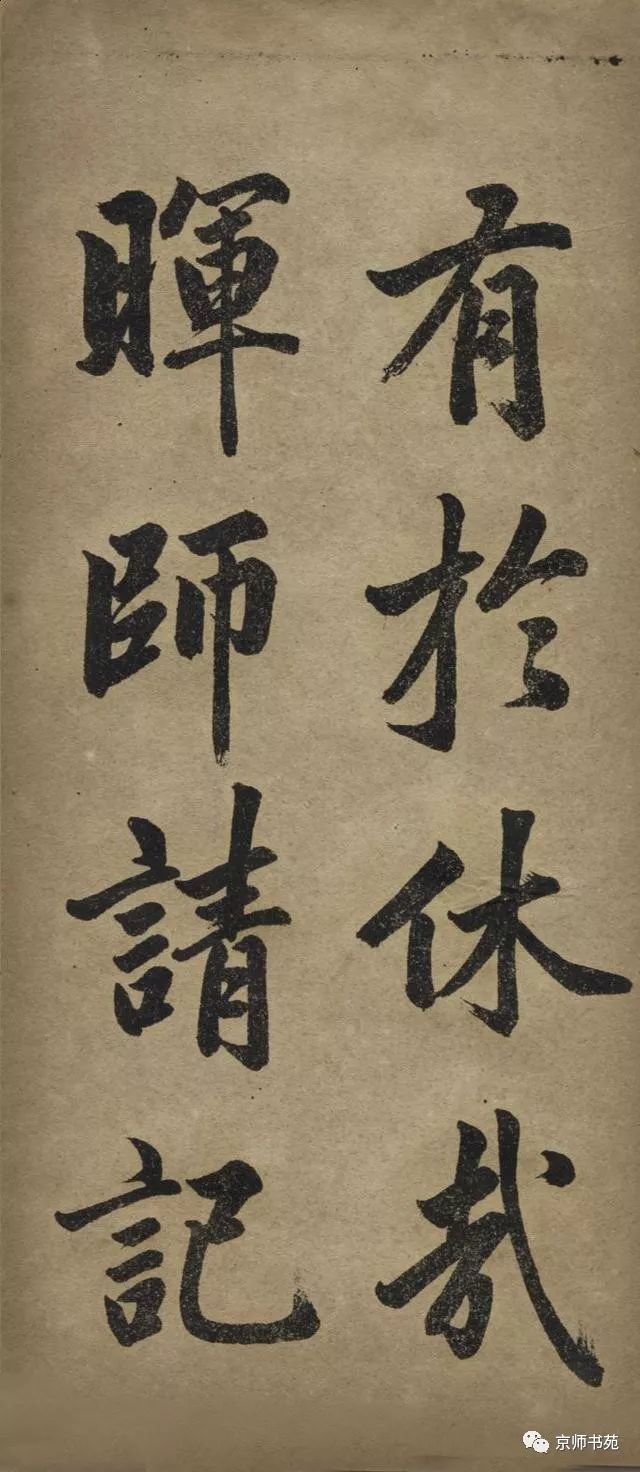 有於休哉
暉師請記
京师书苑